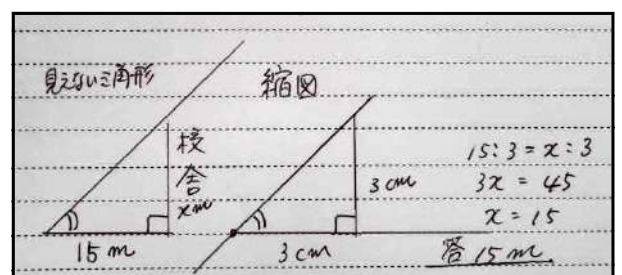 見えない三角形
校舎
xm
15m
縮図
3cm
3cm
15:3=x:3
3x=45
x=15
答 15m